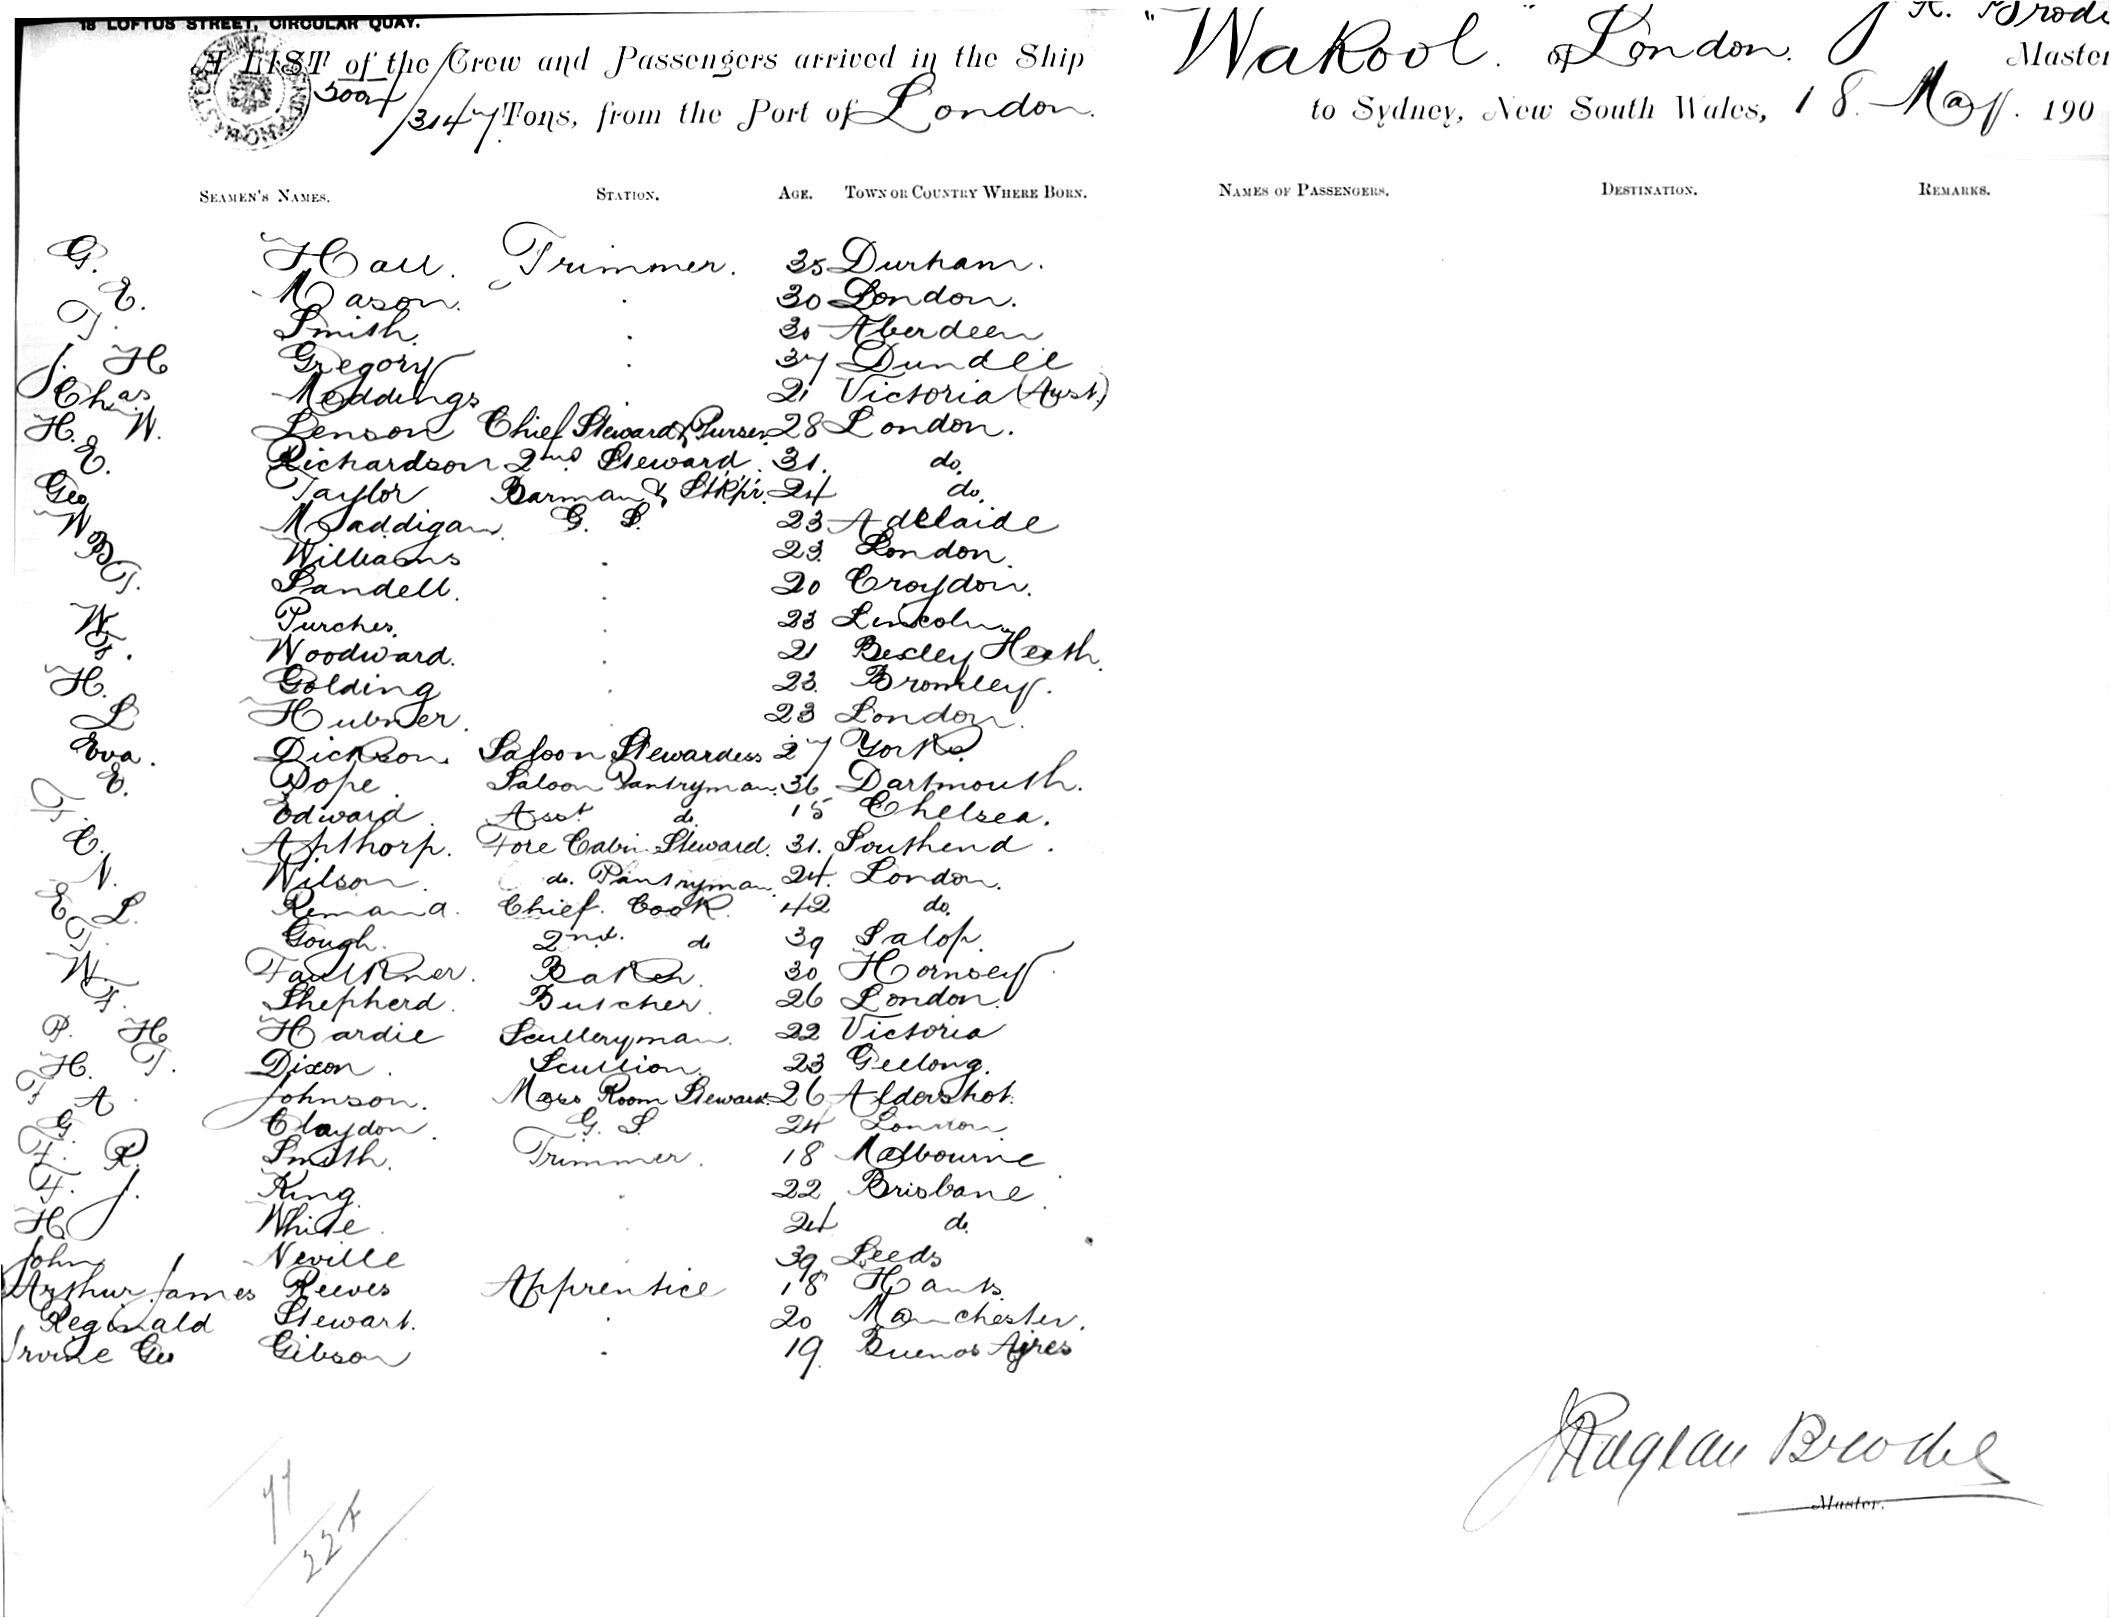 18 LOFTUS STREET, CIRCULAR QUAY.
A LIST of the Crew and Passengers arrived in the Ship "Wakool" of London. J R. Brodi Master
3147 Tons, from the Port of London. to Sydney, New South Wales, 18. May. 190
SEAMEN'S NAMES. STATION. AGE. TOWN OR COUNTRY WHERE BORN. NAMES OF PASSENGERS. DESTINATION. REMARKS.
G. Hall. Trimmer. 35 Durham.
E. Mason. . 30 London.
T. Smith. . 30 Aberdeen
J. H Gregory . 37 Dundee
Chas Meddings . 21 Victoria (Aust.)
H. W. Lenson Chief Steward & Purser 28 London.
E. Richardson 2nd Steward. 31. do.
Geo Taylor Barman & Stkpr. 24 do.
W Maddigan. G. S. 23 Adelaide
B Williams . 23. London.
T. Sandell. . 20 Croydon.
W. Purches. . 23 Lincoln
Woodward. . 21 Bexley Heath.
H. Golding . 23. Bromley.
L Hubner. . 23 London.
Eva. Dickson. Saloon Stewardess 27 Yorks.
E. Pope. Saloon Pantryman. 36 Dartmouth.
F. Edward. Asst do. 15 Chelsea.
C. Apthorp. Fore Cabin Steward. 31. Southend.
N. Wilson. do. Pantryman. 24. London.
E L. Remand. Chief. Cook. 42 do.
T. Gough. 2nd. do 39 Salop.
W. Faulkner. Baker. 30 Hornsey.
F. Shepherd. Butcher. 26 London.
P. H Hardie Sculleryman. 22 Victoria
H. T. Dixon. Scullion. 23 Geelong.
F A. Johnson. Mess Room Steward. 26 Aldershot.
G Claydon. G. S. 24 London
F. R. Smith. Trimmer. 18 Melbourne
F. J. King. . 22 Brisbane.
H White. . 24 do.
John Neville . 39 Leeds
Arthur James Reeves Apprentice 18 Hants.
Reginald Stewart. . 20 Manchester.
Irvine Geo Gibson . 19. Buenos Ayres
J Raglan Brodie
Master.